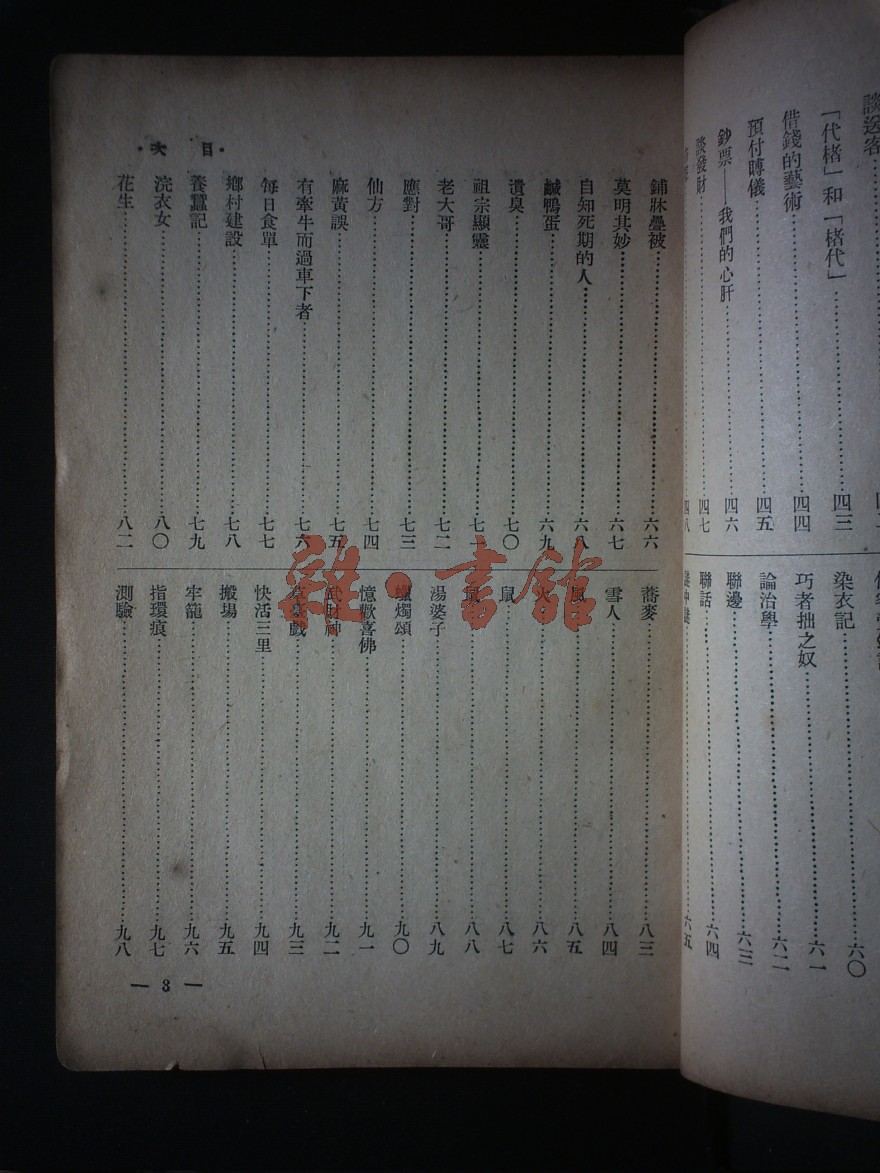 談送客
「代楮」和「楮代」……四三
借錢的藝術……四四
預付賻儀……四五
鈔票——我們的心肝……四六
談發財……四七
……四八
染衣記……六〇
巧者拙之奴……六一
論治學……六二
聯邊……六三
聯話……六四
……六五
·目次·
鋪牀疊被……六六
莫明其妙……六七
自知死期的人……六八
鹹鴨蛋……六九
遺臭……七〇
祖宗顯靈……七一
老大哥……七二
應對……七三
仙方……七四
麻黃誤……七五
有牽牛而過車下者……七六
每日食單……七七
鄉村建設……七八
養蠶記……七九
浣衣女……八〇
花生……八二
蕎麥……八三
雪人……八四
……八五
火……八六
鼠……八七
……八八
湯婆子……八九
蠟燭頌……九〇
憶歡喜佛……九一
武財神……九二
草臺戲……九三
快活三里……九四
搬場……九五
牢籠……九六
指環痕……九七
測驗……九八
— 3 —
雜·書館